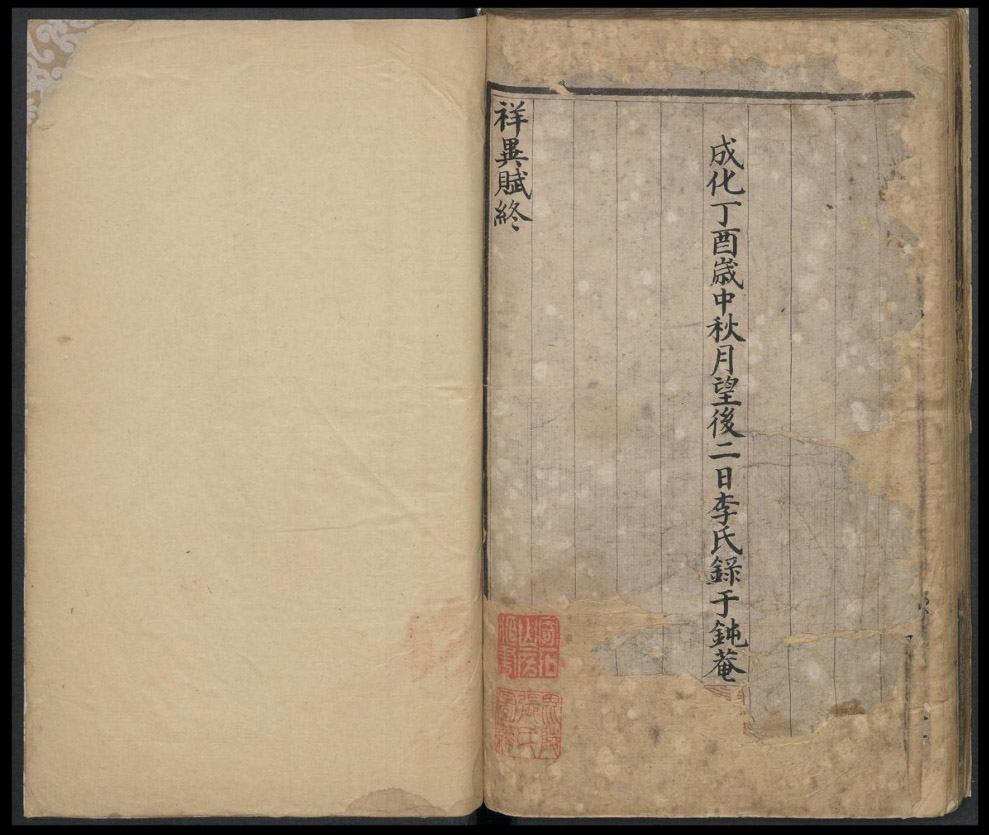 成化丁酉歲中秋月望後二日李氏錄于鈍菴
祥異賦終